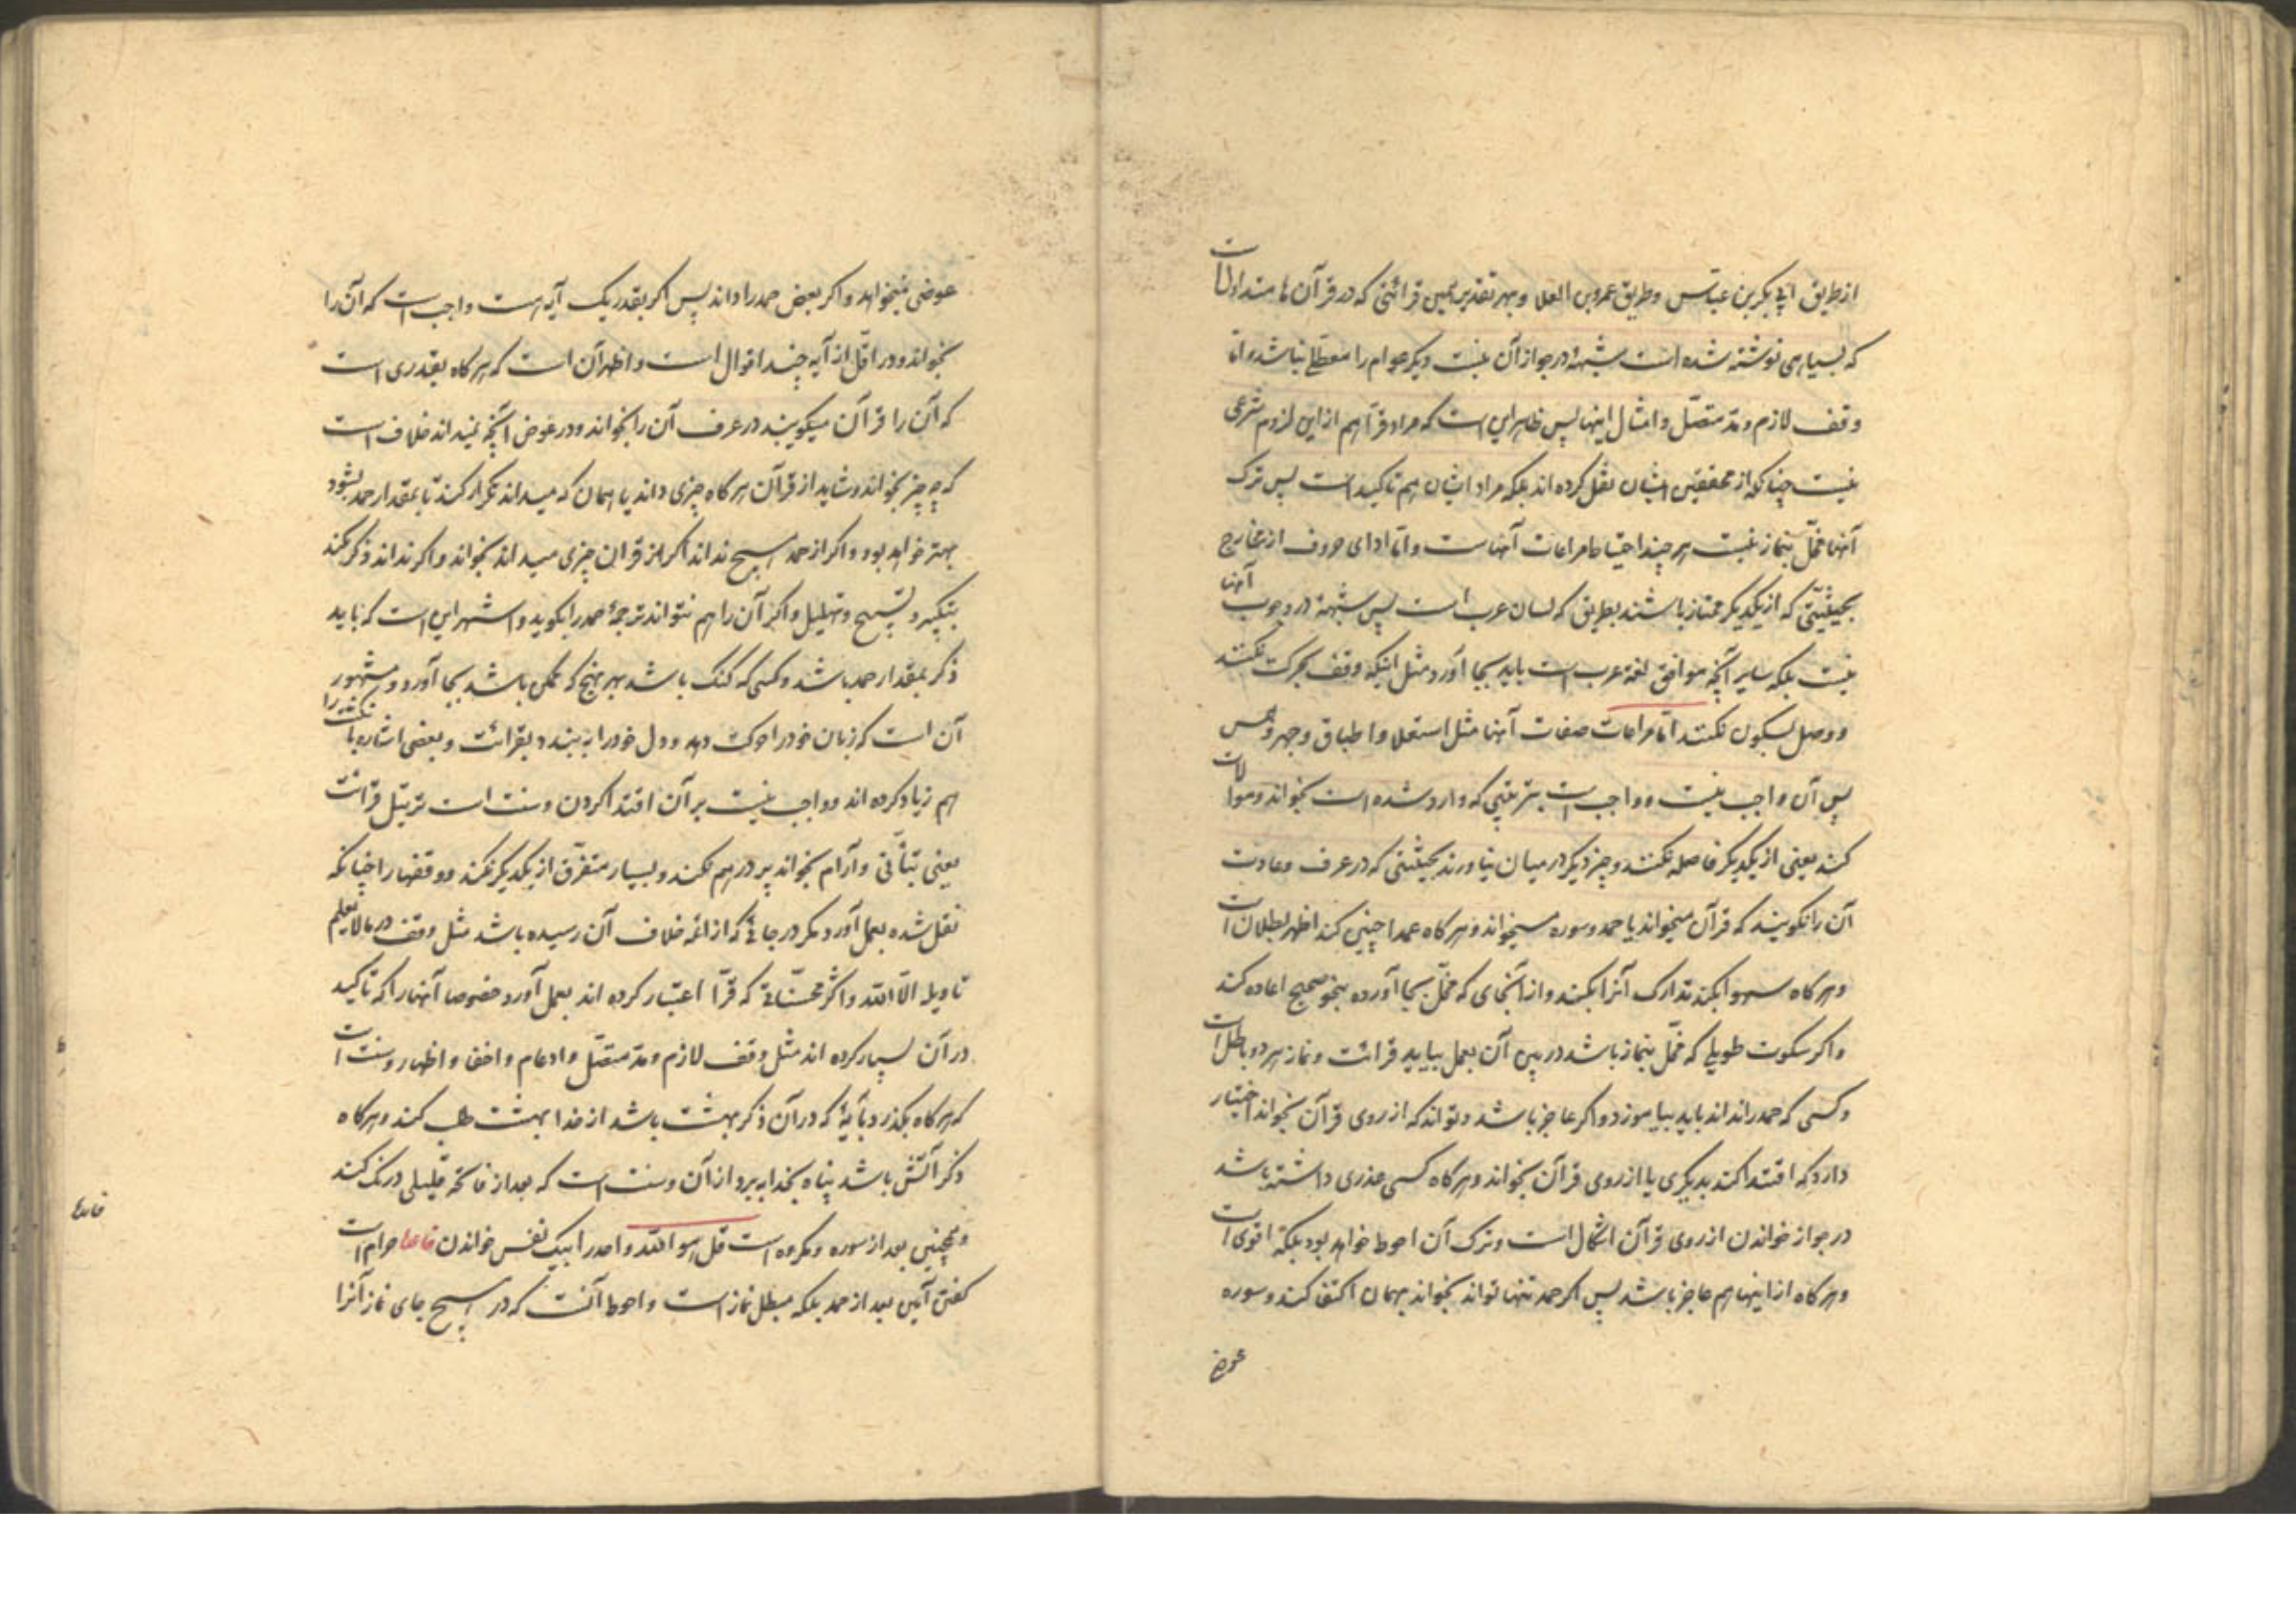 از طریق ابی بکر بن عیاش و طریق عمرو بن العلا و بهر تقدیر همین قرائتی که در قرآن ها متداولات
که بسیاهی نوشته شده است شبهه در جواز آن نیست دیگر عوام را معطلی نباشد و اما
وقف لازم و مد متصل و امثال اینها پس ظاهر این است که مراد قرا هم از این لزوم شرعی
نیست چنانکه از محققین ایشان نقل کرده اند بلکه مراد ایشان هم تاکید است پس ترک
آنها مخل بنماز نیست هر چند احتیاط مراعات آنهاست و اما ادای حروف از مخارج
بحیثیتی که از یکدیگر ممتاز باشند بطریق که لسان عرب است پس شبهه در وجوب آنها
نیست بلکه سایر آنچه موافق لغة عرب است باید بجا آورد مثل اینکه وقف بحرکت نکنند
و وصل بسکون نکنند اما مراعات صفات آنها مثل استعلا و اطباق و جهر و همس
پس آن واجب نیست و واجب است بترتیبی که وارد شده است بخواند و موالات
کند یعنی از یکدیگر فاصله نکنند و چیز دیگر در میان نیاورند بحیثیتی که در عرف و عادت
آن را نگویند که قرآن میخواند یا حمد و سوره میخواند و هر گاه عمدا چنین کند اظهر بطلان است
و هر گاه سهوا بکند تدارک آنرا بکند و از آنجای که مخل بجا آورده بنحو صحیح اعاده کند
و اگر سکوت طویلی که مخل بنماز باشد در بین آن بعمل بیاید قرائت و نماز هر دو باطل است
و کسی که حمد را نداند باید بیاموزد و اگر عاجز باشد و تواند که از روی قرآن بخواند اختیار
دارد که اقتدا کند بدیگری یا از روی قرآن بخواند و هر گاه کسی عذری داشته باشد
در جواز خواندن از روی قرآن اشکال است و ترک آن احوط خواهد بود بلکه اقوی است
و هر گاه از اینها هم عاجز باشد پس اگر حمد تنها تواند بخواند بهمان اکتفا کند و سوره
عوض
عوضی نمیخواهد و اگر بعض حمد را داند پس اگر بقدر یک آیه است واجب است که آن را
بخواند و در اقل از آیه چند اقوال است و اظهر آن است که هر گاه بقدری است
که آن را قرآن میگویند در عرف آن را بخواند و در عوض آنچه نمیداند خلاف است
که چه چیز بخواند و شاید از قرآن هر گاه چیزی داند یا همان که میداند تکرار کند تا بمقدار حمد بشود
بهتر خواهد بود و اگر از حمد هیچ نداند اگر از قران چیزی میداند بخواند و اگر نداند ذکر کند
بتکبیر و تسبیح و تهلیل و اگر آن را هم نتواند ترجمهٔ حمد را بگوید و اشهر این است که باید
ذکر بمقدار حمد باشد و کسی که گنگ باشد بهر نهج که ممکن باشد بجا آورد و مشهور
آن است که زبان خود را حرکت دهد و دل خود را به بندد بقرائت و بعضی اشاره با انگشت را
هم زیاد کرده اند و واجب نیست بر آن اقتدا کردن و سنت است ترتیل قرائت
یعنی بتأنی و آرام بخواند پر در هم نکند و بسیار متفرق از یکدیگر نکند و وقفها را چنانکه
نقل شده بعمل آورد مگر در جائی که از ائمه خلاف آن رسیده باشد مثل وقف در ما لا یعلم
تاویله الا الله و اکثر محسناتی که قرا اعتبار کرده اند بعمل آورد خصوصا آنها را که تاکید
در آن بسیار کرده اند مثل وقف لازم و مد متصل و ادغام و اخفا و اظهار و سنت است
که هر گاه بگذرد بآیهٔ که در آن ذکر بهشت باشد از خدا بهشت طلب کند و هر گاه
ذکر آتش باشد پناه بخدا به برد از آن و سنت است که بعد از فاتحه قلیلی درنگ کند
و همچنین بعد از سوره و مکروه است قل هو الله احد را بیک نفس خواندن حرام است
گفتن آمین بعد از حمد بلکه مبطل نماز است و احوط آنست که در هیچ جای نماز آنرا